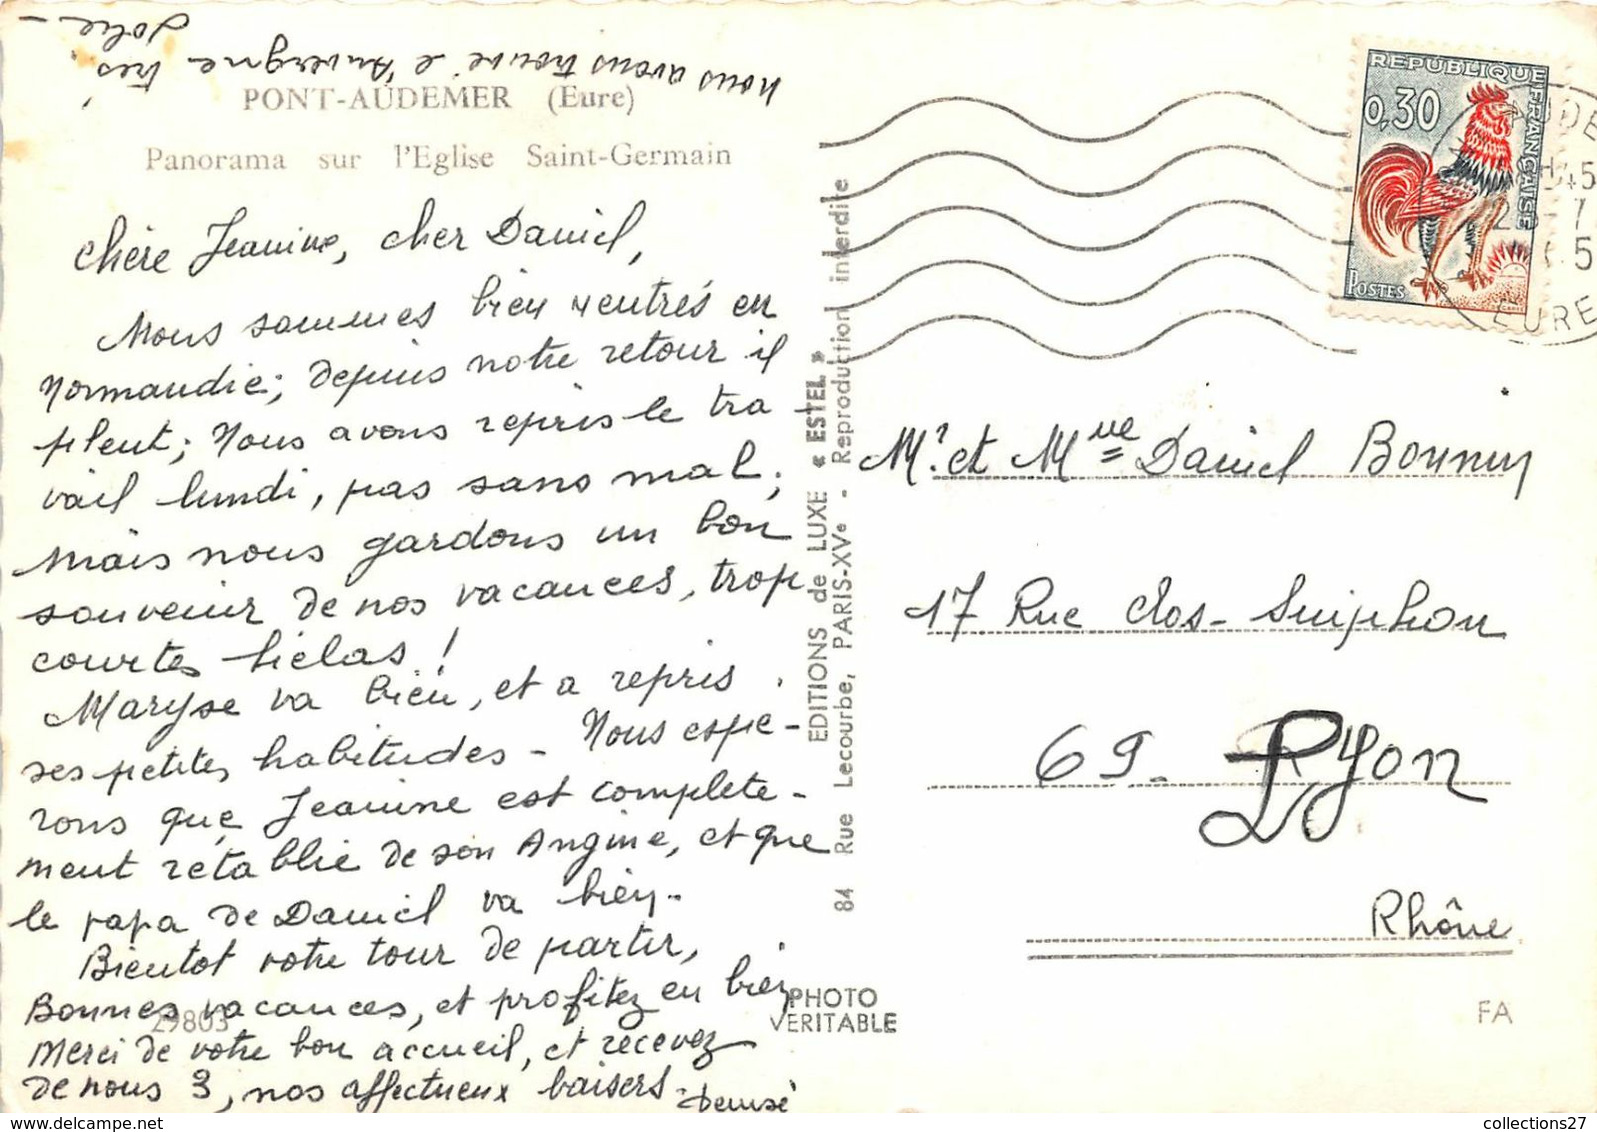 nous avons trouvé l'Auvergne très
jolie -
PONT-AUDEMER (Eure)
Panorama sur l'Eglise Saint-Germain
chère Jeanine, cher Daniel,
Nous sommes bien rentrés en
Normandie; depuis notre retour il
pleut; Nous avons repris le tra
vail lundi, pas sans mal;
mais nous gardons un bon
souvenir de nos vacances, trop
courtes hélas!
Maryse va bien, et a repris
ses petites habitudes - Nous espé-
rons que Jeanine est complète-
ment rétablie de son Angine, et que
le papa de Daniel va bien.
Bientot votre tour de partir,
Bonnes vacances, et profitez en bien
29803
Merci de votre bon accueil, et recevez
de nous 3, nos affectueux baisers.
Denise
EDITIONS de LUXE « ESTEL »
84 Rue Lecourbe, PARIS-XVe - Reproduction interdite
PHOTO
VERITABLE
REPUBLIQUE FRANÇAISE
0,30
POSTES
AUDE
45
7
5
EURE
Mr. et Mme Daniel
17 Rue Clos-Suiphon
69 - Lyon
Rhône
FA
collections27